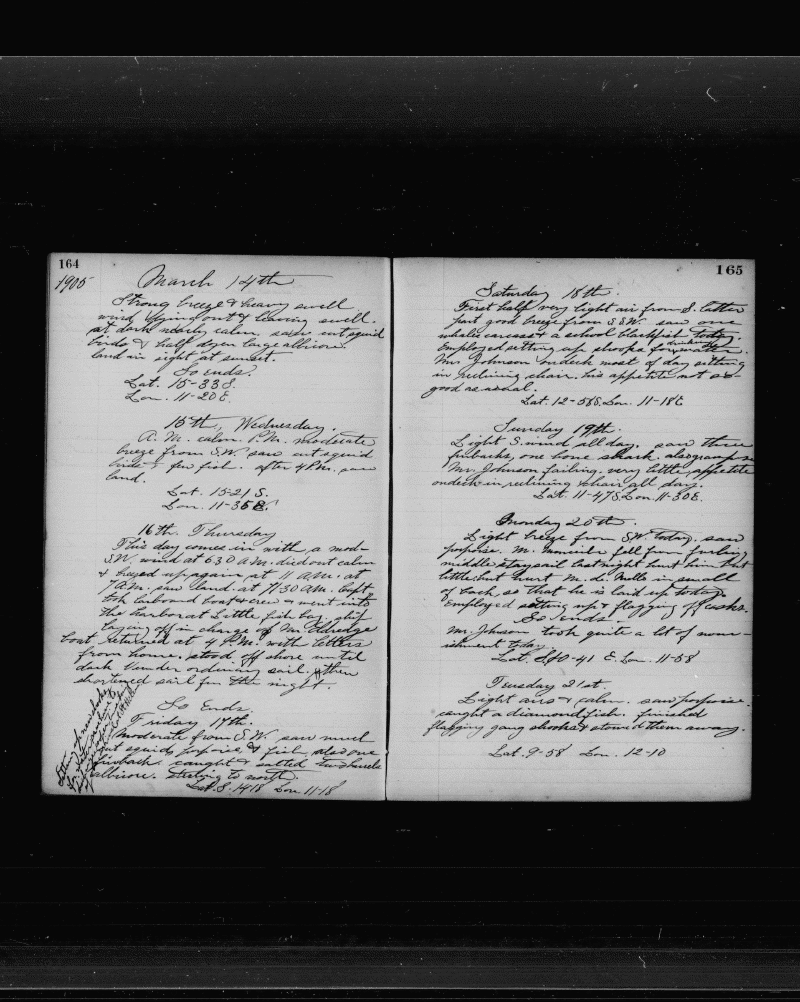 164
1905 March 14th
Strong breeze & heavy swell
wind dying out & leaving swell.
at dark nearly calm. saw cut squid
birds & half dozen large albicore.
land in sight at sunset.
So Ends.
Lat. 15-33 S.
Lon. 11-20 E.
15th, Wednesday.
A. M. calm. P.M. moderate
breeze from S.W. saw cut squid
birds & few fish. after 4 P.M. saw
land.
Lat. 15-21 S.
Lon. 11-35 E.
16th. Thursday
This day comes in with a mod-
S.W. wind at 6 30 A.M. died out calm
& breezed up again at 11 A.M. at
7 A.M. saw land. at 7/30 A.M. Capt
took larboard boat & crew & went into
the harbor at Little fish bay, ship
laying off in charge of Mr. Eldredge
boat returned at 4 P.M. with letters
from home. stood off shore until
dark under ordinary sail. then
shortened sail for the night.
So Ends.
Friday 17th.
Moderate from S.W. saw much
cut squid, porpoise & fish, also one
finback. caught & salted two barrels
albicore. steering to north.
Lat. S. 14 18 Lon 11-18
165
Saturday 18th.
First half very light air from S. latter
part good breeze from S.S.W. saw one
whales carcass a school blackfish today.
Employed setting up shooks for water.
Mr. Johnson ondeck most of day sitting
in reclining chair. his appetite not so
good as usual.
Lat. 12-56 S. Lon. 11-18 E
Sunday 19th.
Light S. wind all day. saw three
finbacks, one bone shark. also grampus
Mr. Johnson failing. very little appetite
ondeck in reclining chair all day.
Lat 11-47 S. Lon. 11-30 E.
Monday 20th.
Light breeze from S.W. today. saw
porpoise. M. fell from furling
middle staysail last night hurt him but
little but hurt M. de Mello in small
of back, so that he is laid up today.
Employed setting up & flagging off casks.
So Ends.
Mr. Johnson took quite a lot of nour-
ishment today.
Lat. S. 10-41 E. Lon. 11-58
Tuesday 21st.
Light airs & calm. saw porpoise.
caught a diamond fish. finished
flagging gang shooks & stowed them away.
Lat. 9-58 Lon. 12-10